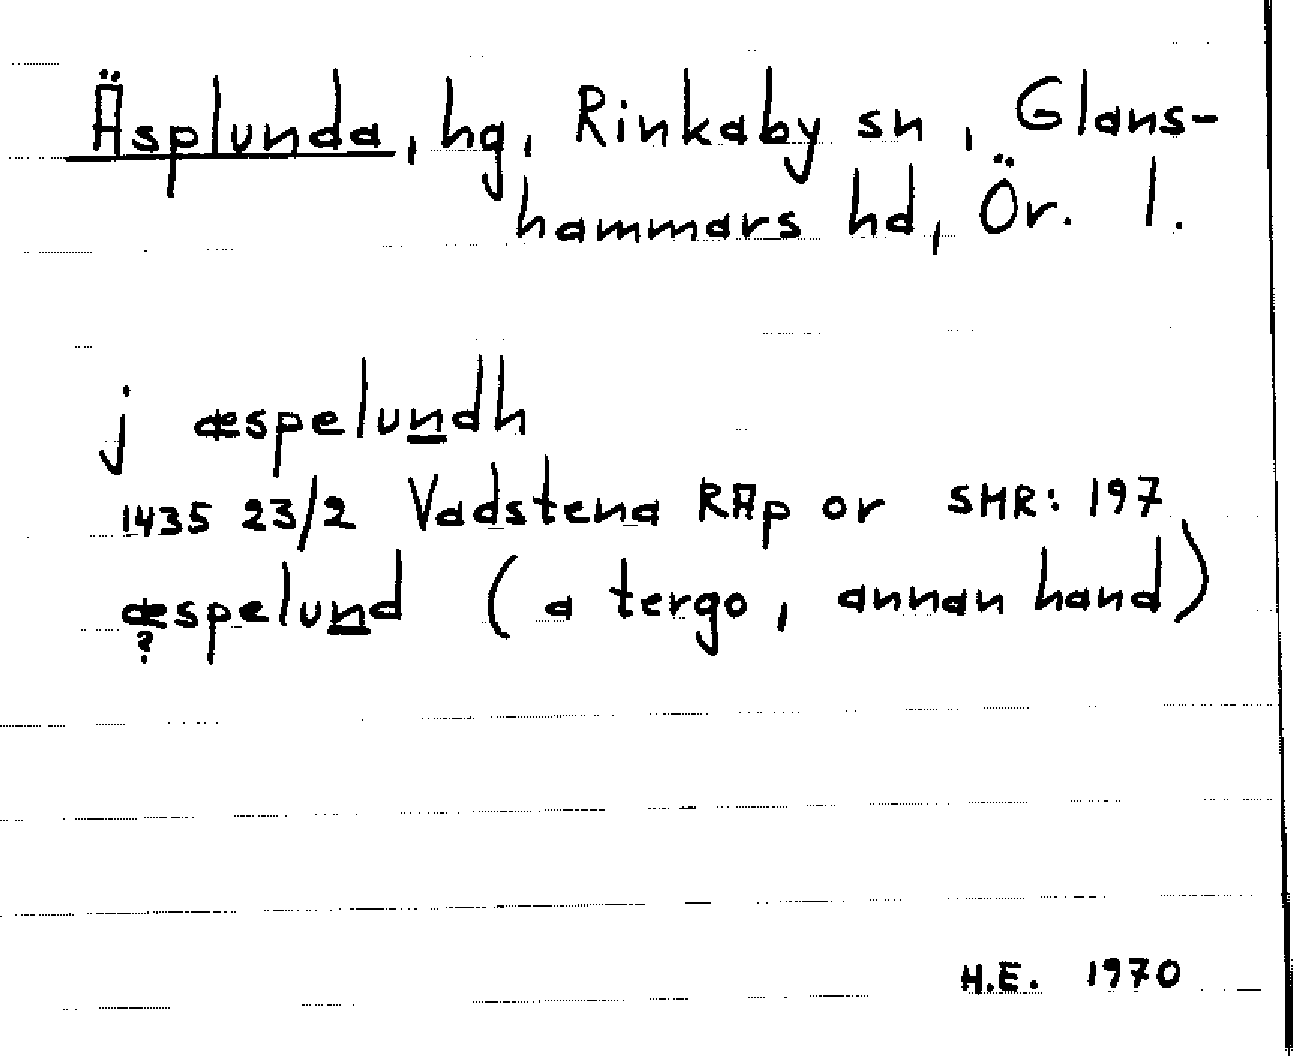 Äsplunda, hg, Rinkaby sn, Glans-
hammars hd, Ör. l.
j æspelundh
1435 23/2 Vadstena RAp or SMR: 197
æspelund (a tergo, annan hand)
?
H.E. 1970